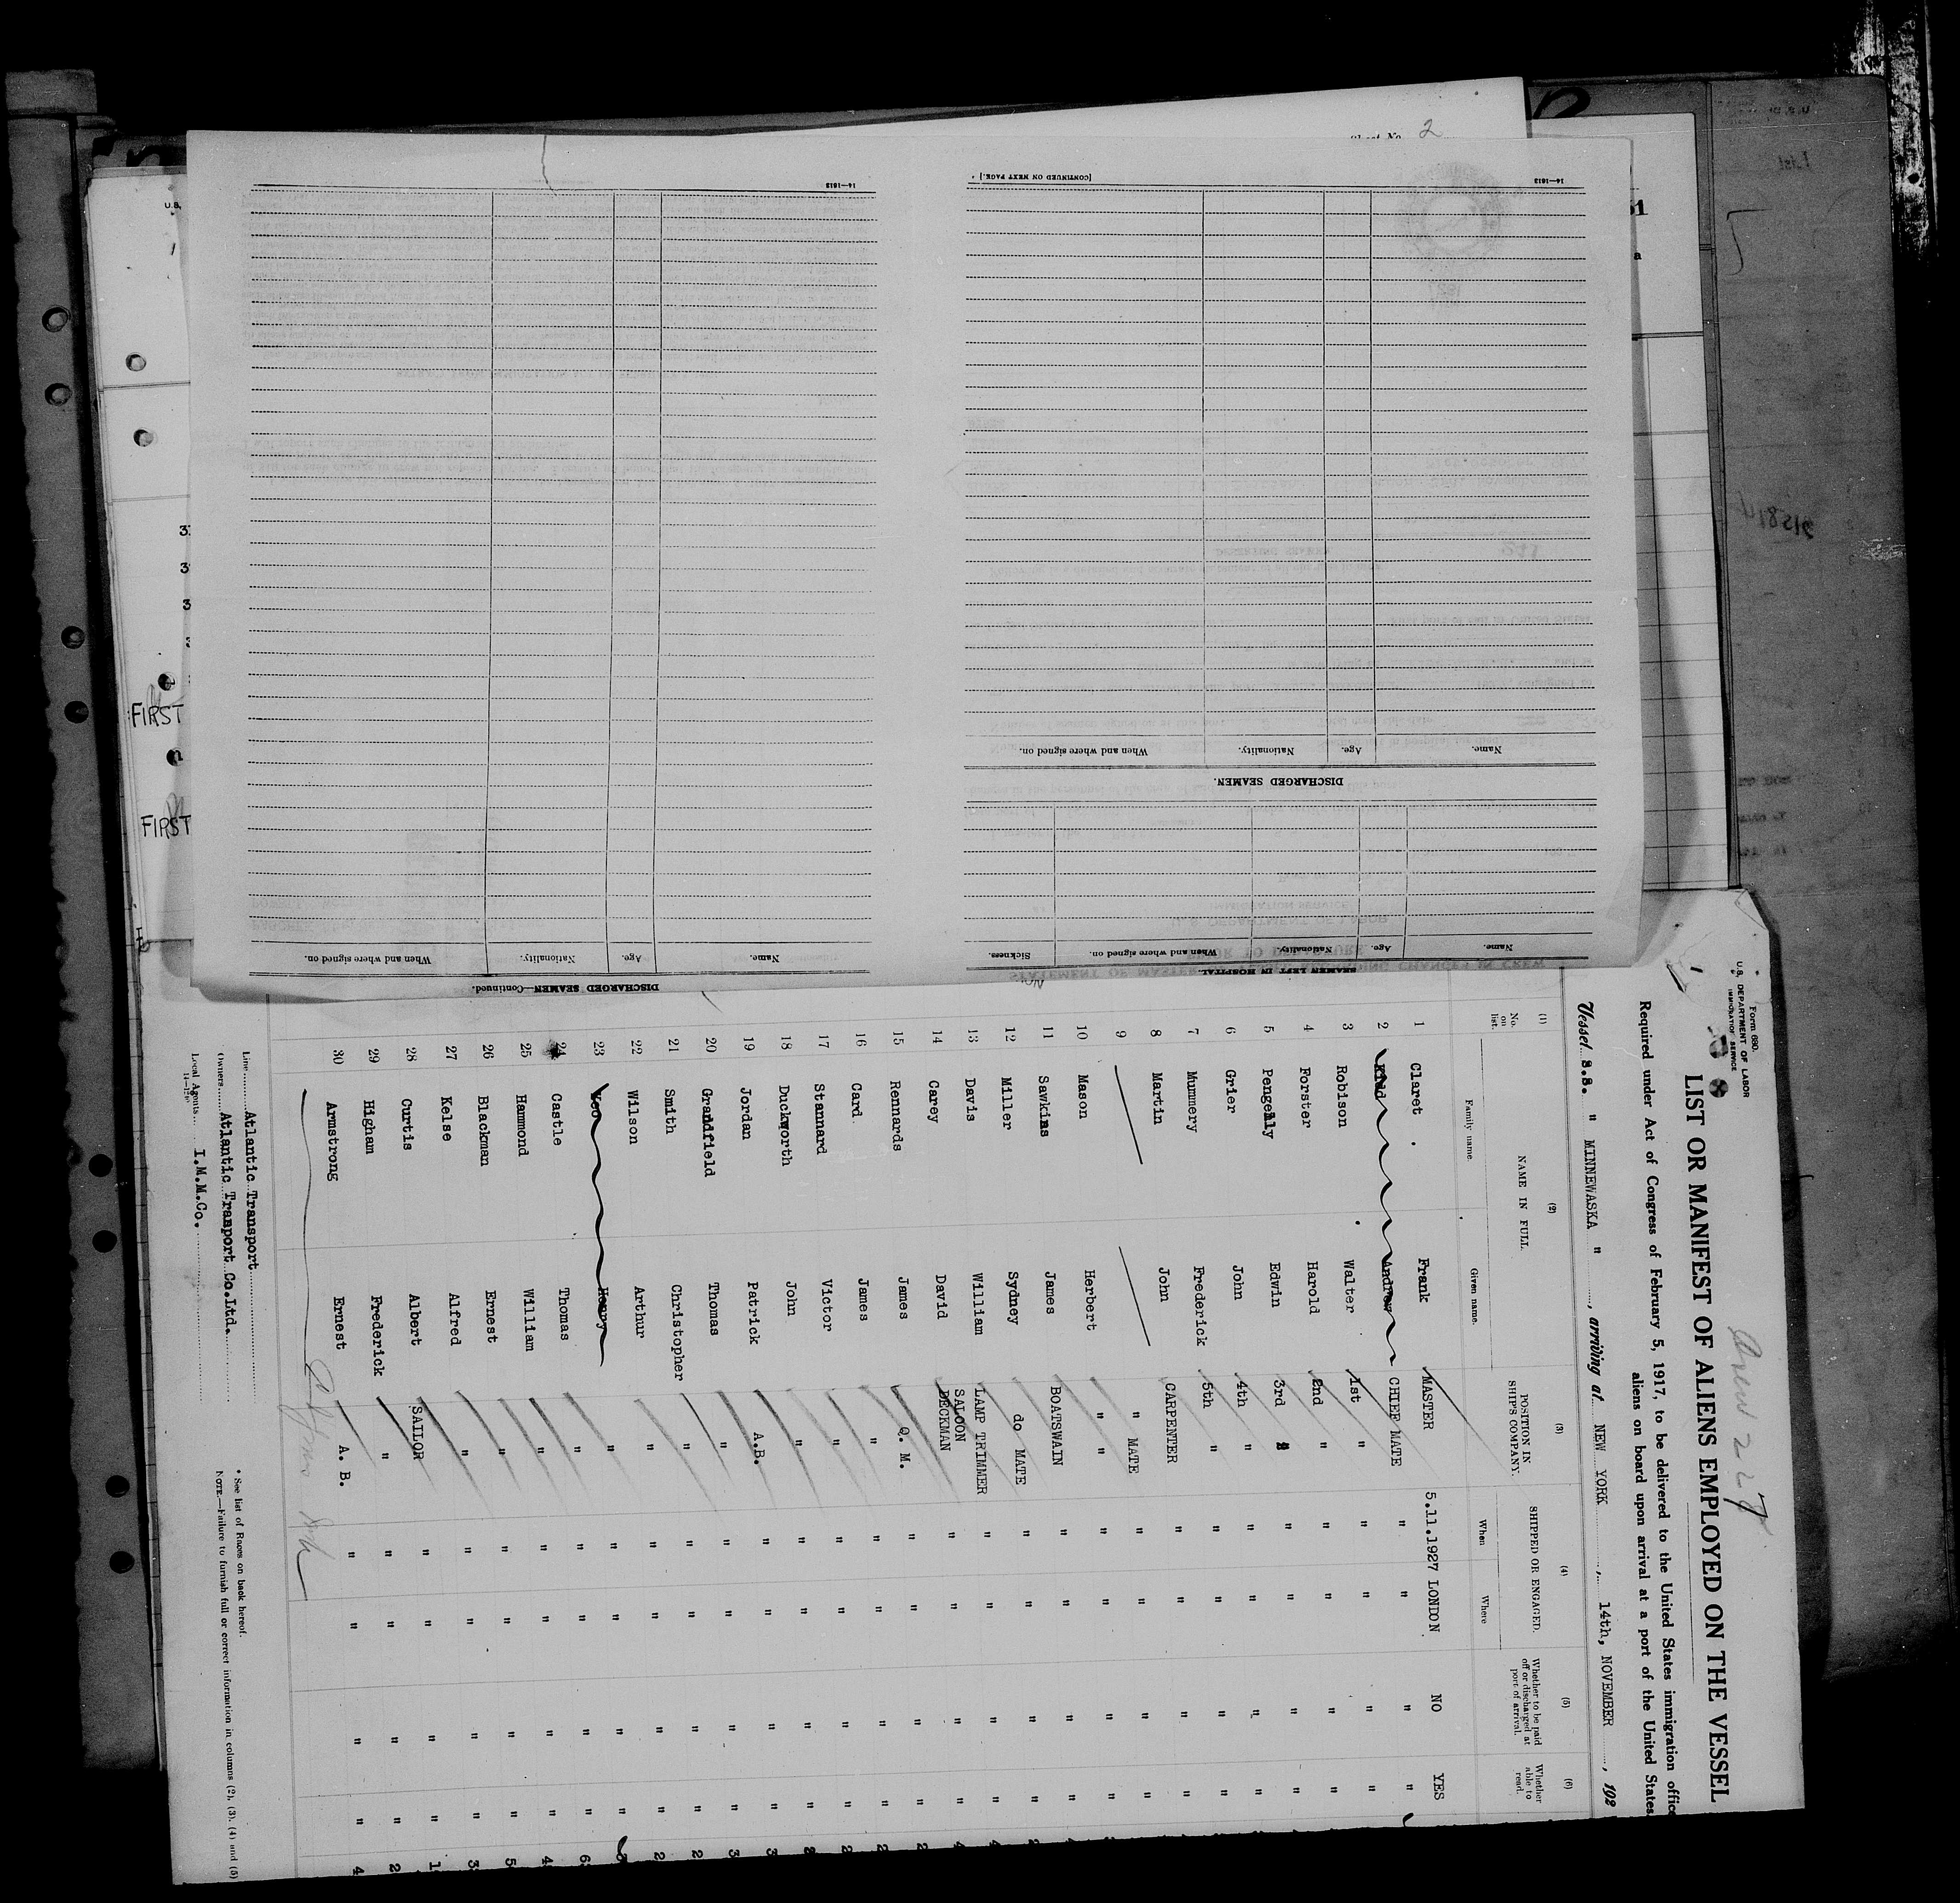 Sheet No. 2
14—1613
[CONTINUED ON NEXT PAGE.]
14—1613
Name.
Age.
Nationality.
When and where signed on.
DISCHARGED SEAMEN.
Name.
Age.
Nationality.
When and where signed on.
Sickness.
SEAMEN LEFT IN HOSPITAL.
Name.
Age.
Nationality.
When and where signed on.
DISCHARGED SEAMEN—Continued.
FIRST
FIRST
Form 680.
U.S. DEPARTMENT OF LABOR
IMMIGRATION SERVICE
LIST OR MANIFEST OF ALIENS EMPLOYED ON THE VESSEL
Required under Act of Congress of February 5, 1917, to be delivered to the United States immigration offic
aliens on board upon arrival at a port of the United States
Vessel S.S. " MINNEWASKA " , arriving at NEW YORK , 14th, NOVEMBER , 192
(1) (2) (3) (4) (5) (6)
No. on list. NAME IN FULL. POSITION IN SHIP'S COMPANY. SHIPPED OR ENGAGED. Whether to be paid off or discharged at port of arrival. Whether able to read.
Family name. Given name. When Where
1 Claret Frank MASTER 5.11.1927 LONDON NO YES
2 Kidd Andrew CHIEF MATE " " " "
3 Robison Walter 1st " " " " "
4 Forster Harold 2nd " " " " "
5 Pengelly Edwin 3rd " " " " "
6 Grier John 4th " " " " "
7 Mummery Frederick 5th " " " " "
8 Martin John CARPENTER " " " "
9 " MATE " " " "
10 Mason Herbert " " " " " "
11 Sawkins James BOATSWAIN " " " "
12 Miller Sydney do MATE " " " "
13 Davis William LAMP TRIMMER " " " "
14 Carey David SALOON DECKMAN " " " "
15 Rennards James Q. M. " " " "
16 Card James " " " " "
17 Stannard Victor " " " " "
18 Duckworth John " " " " "
19 Jordan Patrick A.B. " " " "
20 Grandfield Thomas " " " " "
21 Smith Christopher " " " " "
22 Wilson Arthur " " " " "
23 Henry " " " " "
24 Castle Thomas " " " " "
25 Hammond William " " " " "
26 Blackman Ernest " " " " "
27 Kelse Alfred " " " " "
28 Curtis Albert SAILOR " " " "
29 Higham Frederick " " " " "
30 Armstrong Ernest A. B. " " " "
Line Atlantic Transport
Owners Atlantic Transport Co.Ltd.
Local Agents I.M.M.Co.
* See list of Races on back hereof.
NOTE.—Failure to furnish full or correct information in columns (2), (3), (4) and (5)